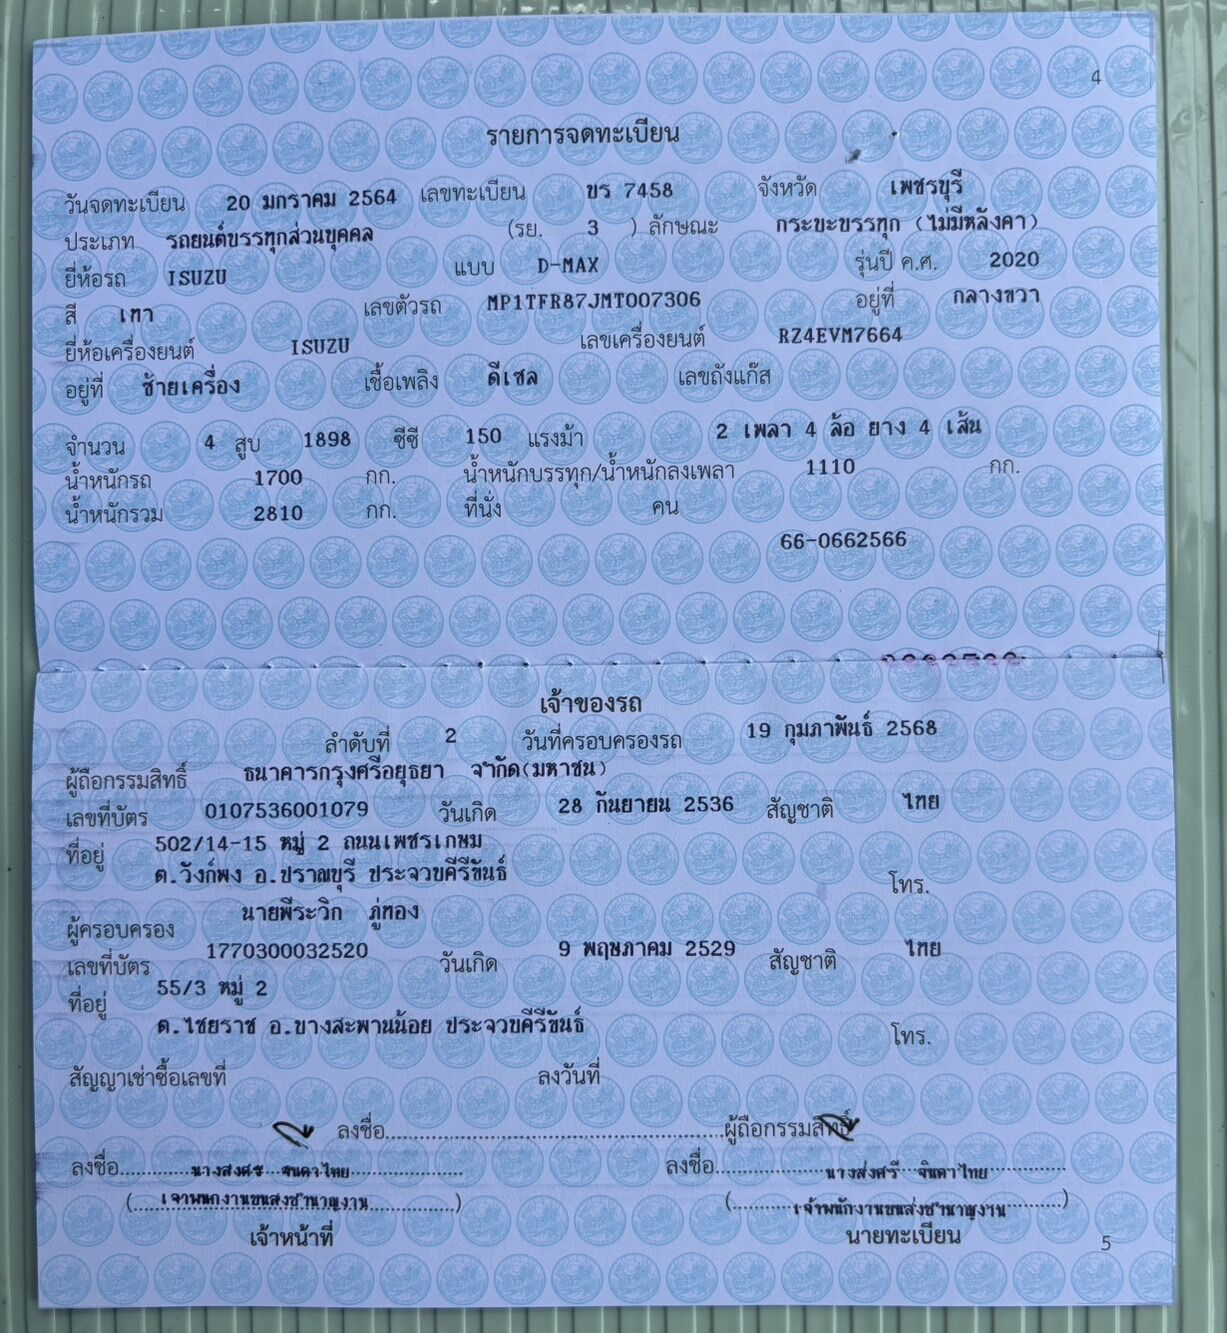 4
รายการจดทะเบียน
วันจดทะเบียน 20 มกราคม 2564 เลขทะเบียน ขร 7458 จังหวัด เพชรบุรี
ประเภท รถยนต์บรรทุกส่วนบุคคล (รย. 3 ) ลักษณะ กระบะบรรทุก (ไม่มีหลังคา)
ยี่ห้อรถ ISUZU แบบ D-MAX รุ่นปี ค.ศ. 2020
สี เทา เลขตัวรถ MP1TFR87JMT007306 อยู่ที่ กลางขวา
ยี่ห้อเครื่องยนต์ ISUZU เลขเครื่องยนต์ RZ4EVM7664
อยู่ที่ ซ้ายเครื่อง เชื้อเพลิง ดีเซล เลขถังแก๊ส
จำนวน 4 สูบ 1898 ซีซี 150 แรงม้า 2 เพลา 4 ล้อ ยาง 4 เส้น
น้ำหนักรถ 1700 กก. น้ำหนักบรรทุก/น้ำหนักลงเพลา 1110 กก.
น้ำหนักรวม 2810 กก. ที่นั่ง คน
66-0662566
เจ้าของรถ
ลำดับที่ 2 วันที่ครอบครองรถ 19 กุมภาพันธ์ 2568
ผู้ถือกรรมสิทธิ์ ธนาคารกรุงศรีอยุธยา จำกัด(มหาชน)
เลขที่บัตร 0107536001079 วันเกิด 28 กันยายน 2536 สัญชาติ ไทย
ที่อยู่ 502/14-15 หมู่ 2 ถนนเพชรเกษม
ต.วังก์พง อ.ปราณบุรี ประจวบคีรีขันธ์
โทร.
ผู้ครอบครอง นายพีระวิก ภู่ทอง
เลขที่บัตร 1770300032520 วันเกิด 9 พฤษภาคม 2529 สัญชาติ ไทย
ที่อยู่ 55/3 หมู่ 2
ต.ไชยราช อ.บางสะพานน้อย ประจวบคีรีขันธ์
โทร.
สัญญาเช่าซื้อเลขที่ ลงวันที่
ลงชื่อ ผู้ถือกรรมสิทธิ์
ลงชื่อ นางส่งศรี จินดาไทย ลงชื่อ นางส่งศรี จินดาไทย
(เจ้าพนักงานขนส่งชำนาญงาน) (เจ้าพนักงานขนส่งชำนาญงาน)
เจ้าหน้าที่ นายทะเบียน
5